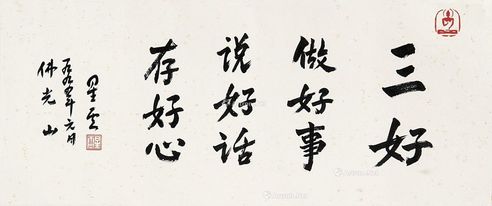 三好
做好事
说好话
存好心
星云
一九九五年元月
佛光山